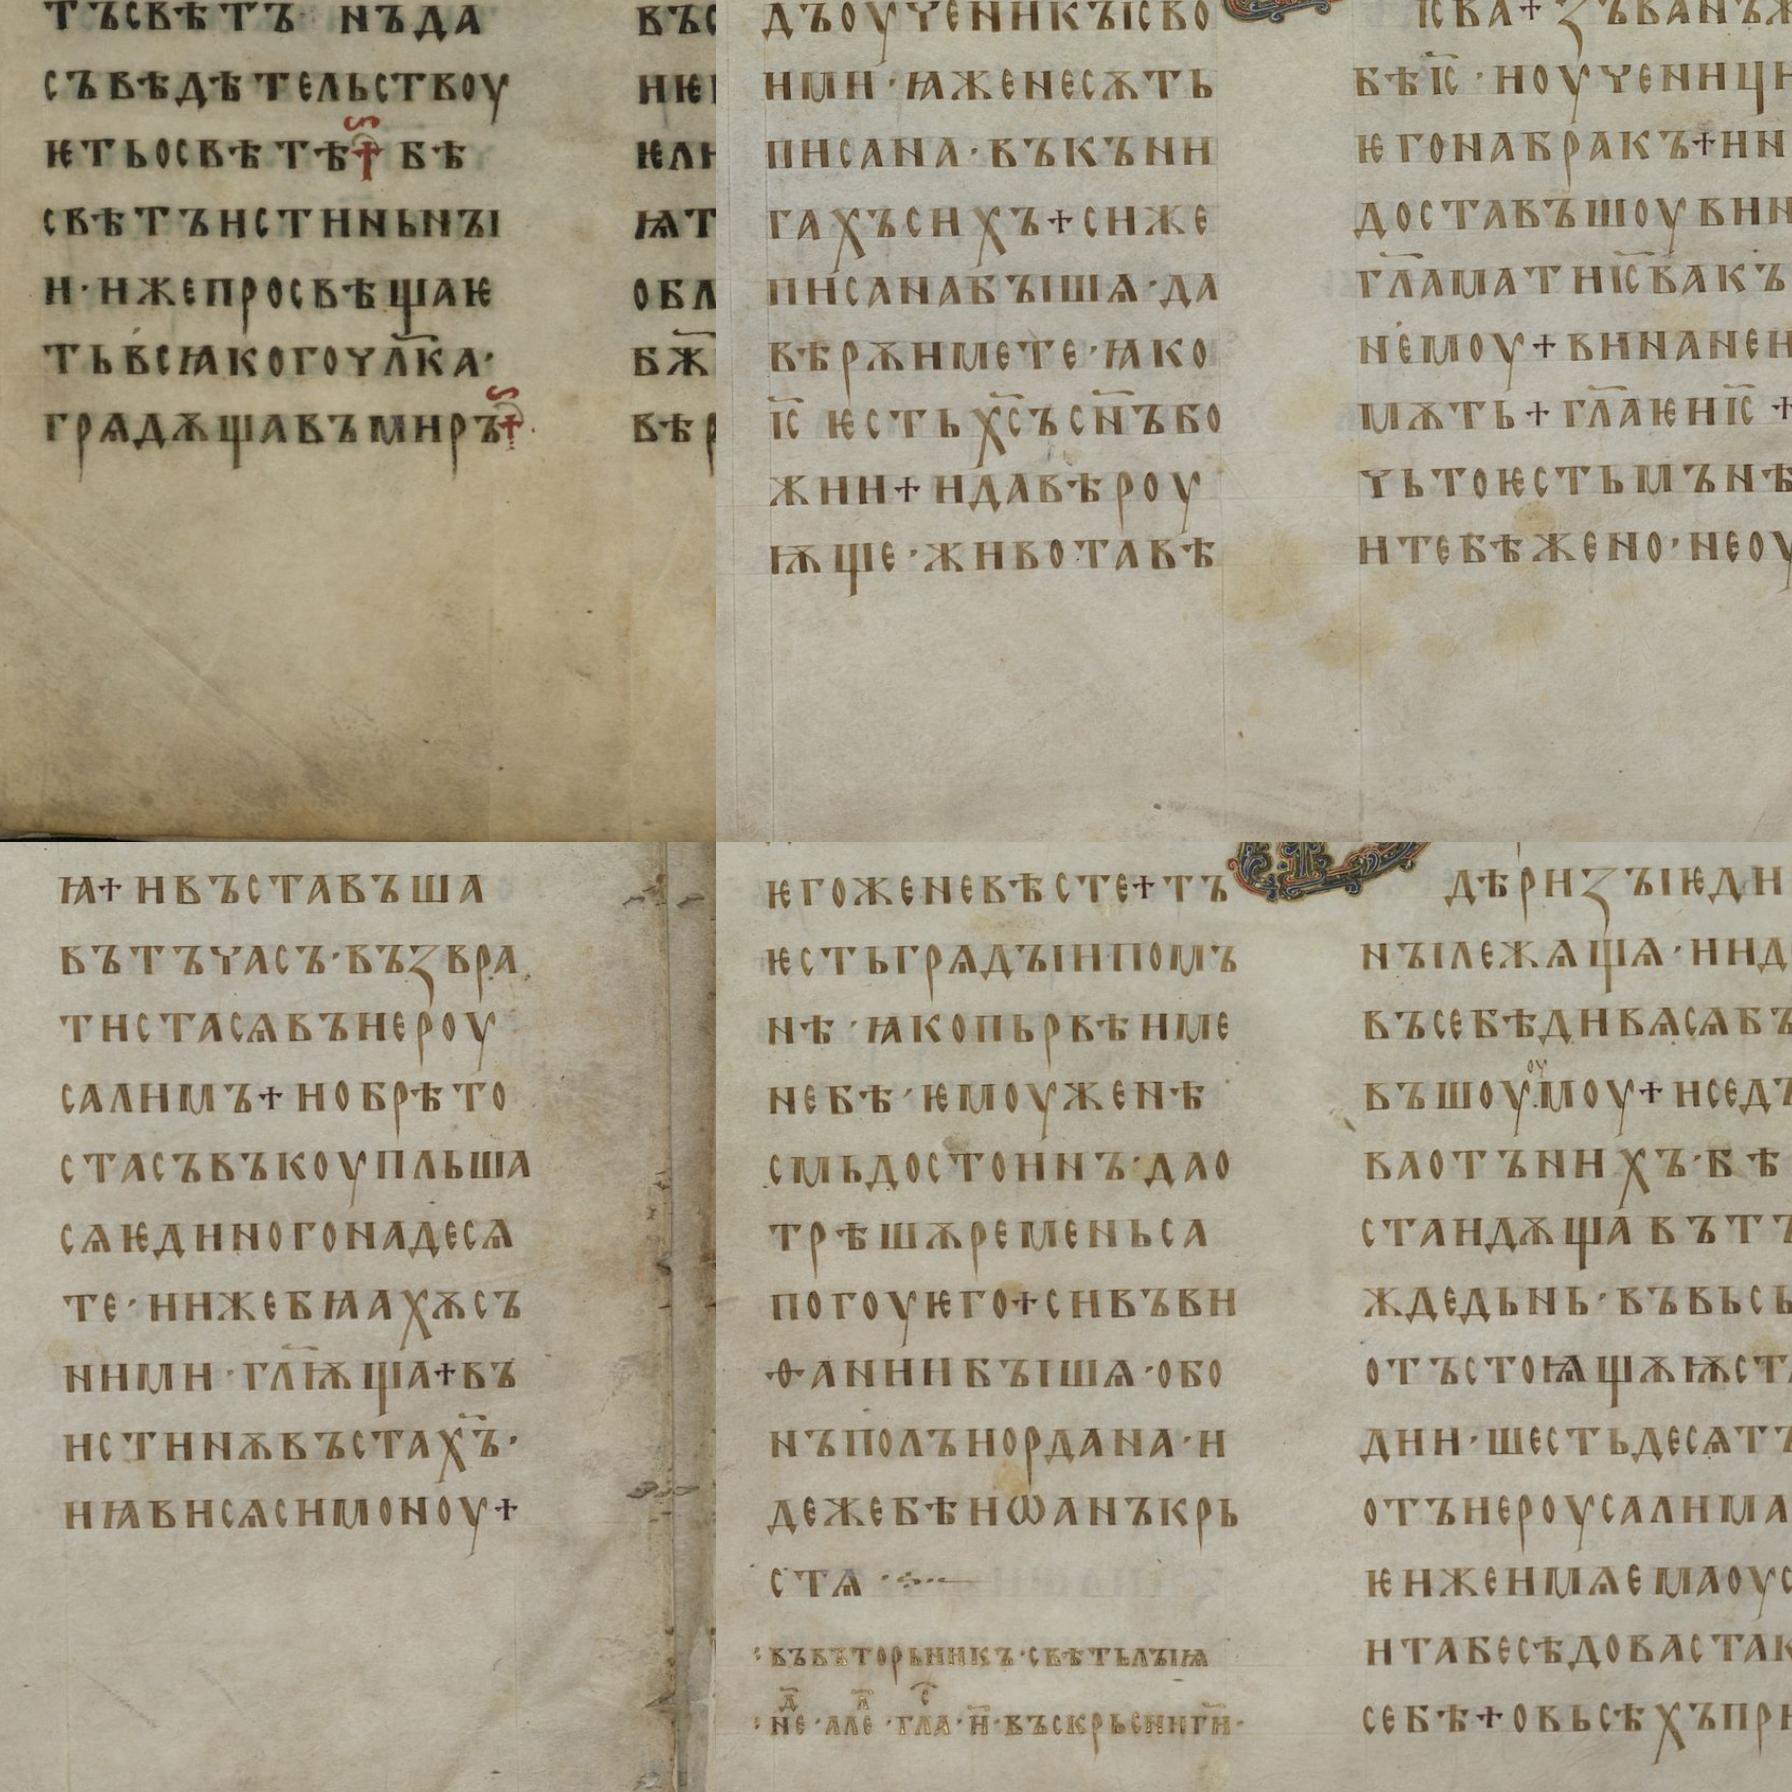 тъсвѣтъ нъда
съвѣдѣтельствоу
ѥтьосвѣтѣ† бѣ
свѣтъистиньнꙑ
и·ижепросвѣщаѥ
тьвьсꙗкогочл҃ка·
грѧдѫщавъмиръ†
въс
ѩт
обл
бж҃
вѣр
дъоученикꙑсво
ими·ꙗженесѫть
писана·въкъни
гахъсихъ+сиже
писанабꙑшѧ·да
вѣрѫимете·ꙗко
іс҃ ѥстьхс҃ъсн҃ъбо
жии+идавѣроу
ѭще·животавѣ
іс҃ва+зъванъж
бѣіс҃·ноученици
ѥгонабракъ+ии
доставъшоувин
гл҃аматиіс҃вакъ
немоу+винанен
мѫть+гл҃аѥиіс҃+
чьтоѥстьмънѣ
итебѣжено·неоу
ꙗ+ивъставъша
вътъчасъ·възвра
тистасѧвъиероу
салимъ+иобрѣто
стасъвъкоупльша
сѧѥдиногонадесѧ
те·иижебꙗахѫсъ
ними·гл҃ѭща+въ
истинѫвъстахъ·
иꙗвисѧсимоноу+
ѥгоженевѣсте+тъ
ѥстьгрѧдꙑипомъ
нѣ·ꙗкопьрвѣиме
небѣ·ѥмоуженѣ
смьдостоинъ·дао
трѣшѫременьса
погоуѥго+сивъви
ѳаниибꙑшѧ·обо
нъполъиордана·и
дежебѣиѡанъкрь
стѧ
въвъторьникъ·свѣтьлꙑѩ
нед҃е·алел҃·глас҃·и҃·въскрьсниги҃·
дѣризꙑѥдн
нꙑлежѧщѧ·иид
въсебѣдивѧсѧбъ
въшоуоумоу+иседъ
ваотънихъ·бѣ
стаидѫщавътъ
ждедьнь·въвьсь
отъстоѩщѫѭст
дии·шестьдесѧтъ
отъиероусалима
ѥижеимѧемаоус
итабесѣдовастак
себѣ+овьсѣхъпри